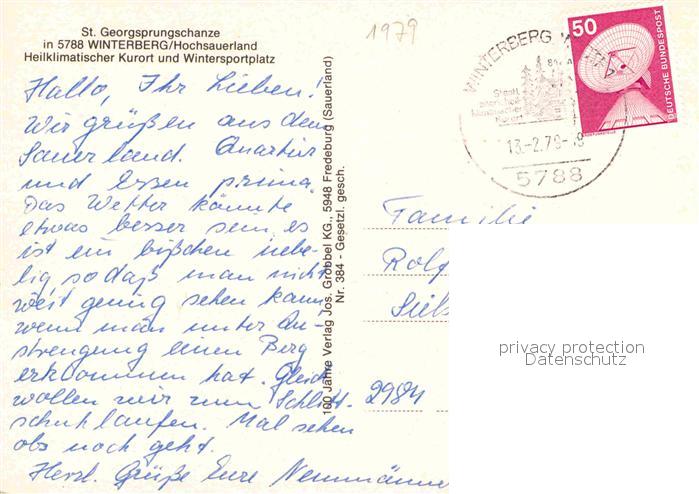 St. Georgsprungschanze
in 5788 WINTERBERG/Hochsauerland
Heilklimatischer Kurort und Wintersportplatz
1979
Hallo, Ihr Lieben!
Wir grüßen aus dem
Sauerland. Quartier
und Essen prima.
Das Wetter könnte
etwas besser sein, es
ist ein bißchen nebe-
lig sodaß man nicht
weit genug sehen kann,
wenn man unter An-
strengung einen Berg
erklommen hat. Gleich
wollen wir zum Schlitt-
schuhlaufen. Mal sehen
obs noch geht.
Herzl. Grüße Eure
100 Jahre Verlag Jos. Grobbel KG., 5948 Fredeburg (Sauerland)
Nr. 384 - Gesetzl. gesch.
WINTERBERG
Staatl.
Kurort
13.-2.79-
5788
50
DEUTSCHE BUNDESPOST
Familie
Rolf
2984
privacy protection
Datenschutz